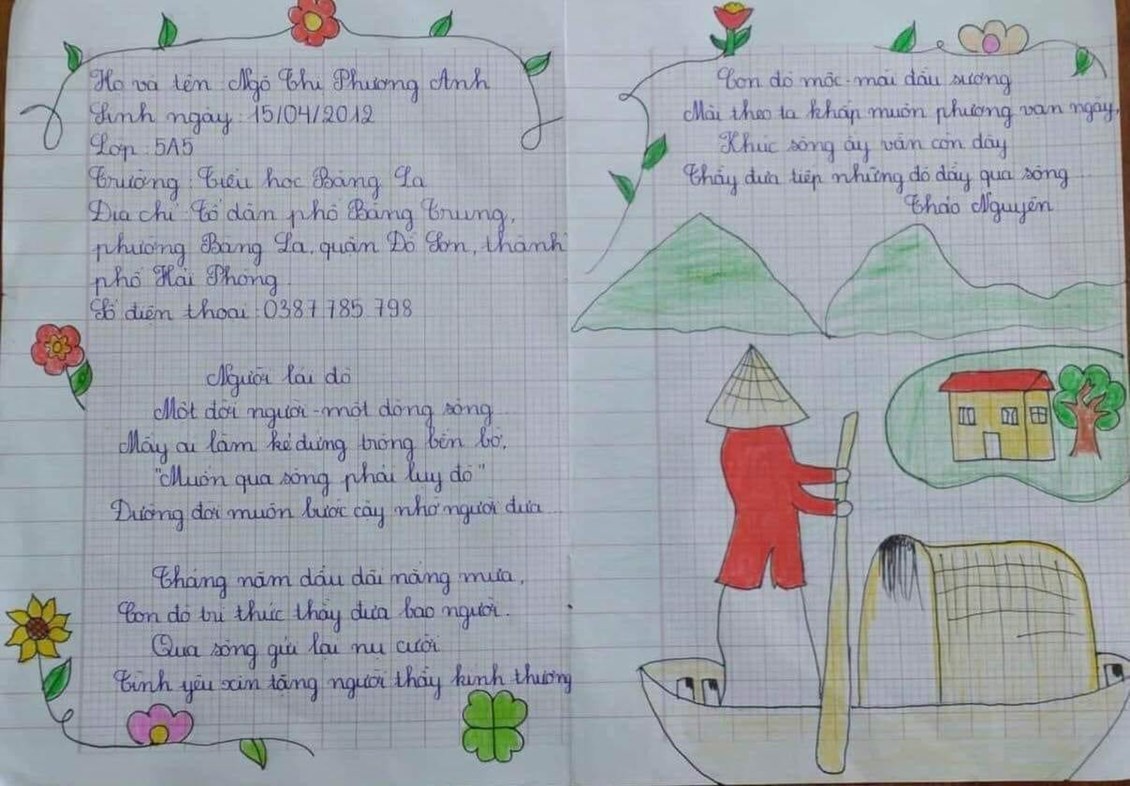 Họ và tên: Ngô Thị Phương Anh
Sinh ngày: 15/04/2012
Lớp: 5A5
Trường: Tiểu học Bàng La
Địa chỉ: Tổ dân phố Bàng Trung,
phường Bàng La, quận Đồ Sơn, thành
phố Hải Phòng
Số điện thoại: 0387 785 798
Người lái đò
Một đời người - một dòng sông
Mấy ai làm kẻ đứng trông bến bờ,
"Muốn qua sông phải lụy đò"
Đường đời muôn bước cậy nhờ người đưa...
Tháng năm dầu dãi nắng mưa,
Con đò tri thức thầy đưa bao người.
Qua sông gửi lại nụ cười
Tình yêu xin tặng người thầy kính thương
Con đò mộc - mái đầu sương
Mãi theo ta khắp muôn phương vạn ngày,
Khúc sông ấy vẫn còn đây
Thầy đưa tiếp những đò đầy qua sông...
Thảo Nguyên